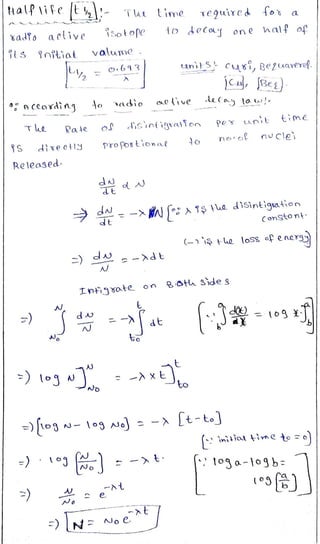 Half life [t½]:- The time required for a
radio active isotope to decay one half of
its initial valume.
t½ = 0.693/λ units: curi, Bequarerel.
[Cu], [Beq].
∵ According to radio active decay law:-
The Rate of disintigration per unit time
is directly proportional to no.of nuclei
Released.
dN/dt α N
⇒ dN/dt = -λN [∵ λ is the disintigration
constant.
(-) is the loss of energy]
⇒) dN/N = -λdt
Intigrate on Both sides
⇒) ∫ᴺ_N₀ dN/N = -λ∫ᵗ_t₀ dt [∵ ∫ dx/x = log x]
⇒) log N]ᴺ_N₀ = -λ×t]ᵗ_t₀
⇒) [log N - log N₀] = -λ [t-t₀]
[∵ initial time t₀ = 0]
⇒) log [N/N₀] = -λt. [∵ log a - log b =
log [a/b]]
⇒) N/N₀ = e^-λt
⇒) N = N₀e^-λt